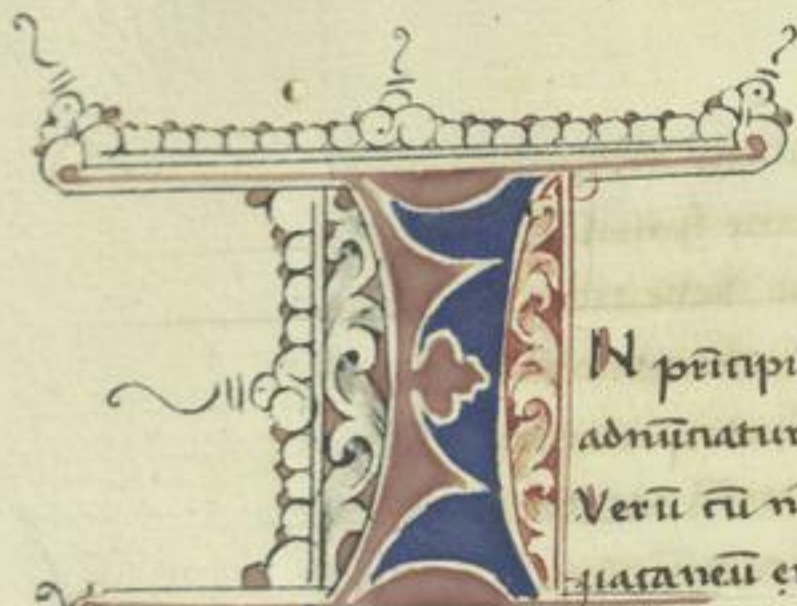 IN pri̅cipi
adnu̅ciatur
Veru̅ cu̅ n